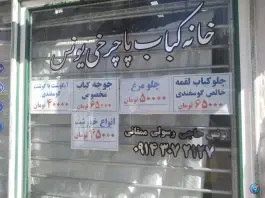 خانه کباب پاچرخی یونس
چلوکباب لقمه
خالص گوسفندی
۶۵۰۰۰ تومان
چلو مرغ
۵۰۰۰۰ تومان
جوجه کباب
مخصوص
۶۵۰۰۰ تومان
آبگوشت با گوشت
گوسفندی
۴۰۰۰۰ تومان
انواع خورشت
تومان
حاجی رسولی ممقانی
۰۹۱۴۳۰۷۲۱۲۷